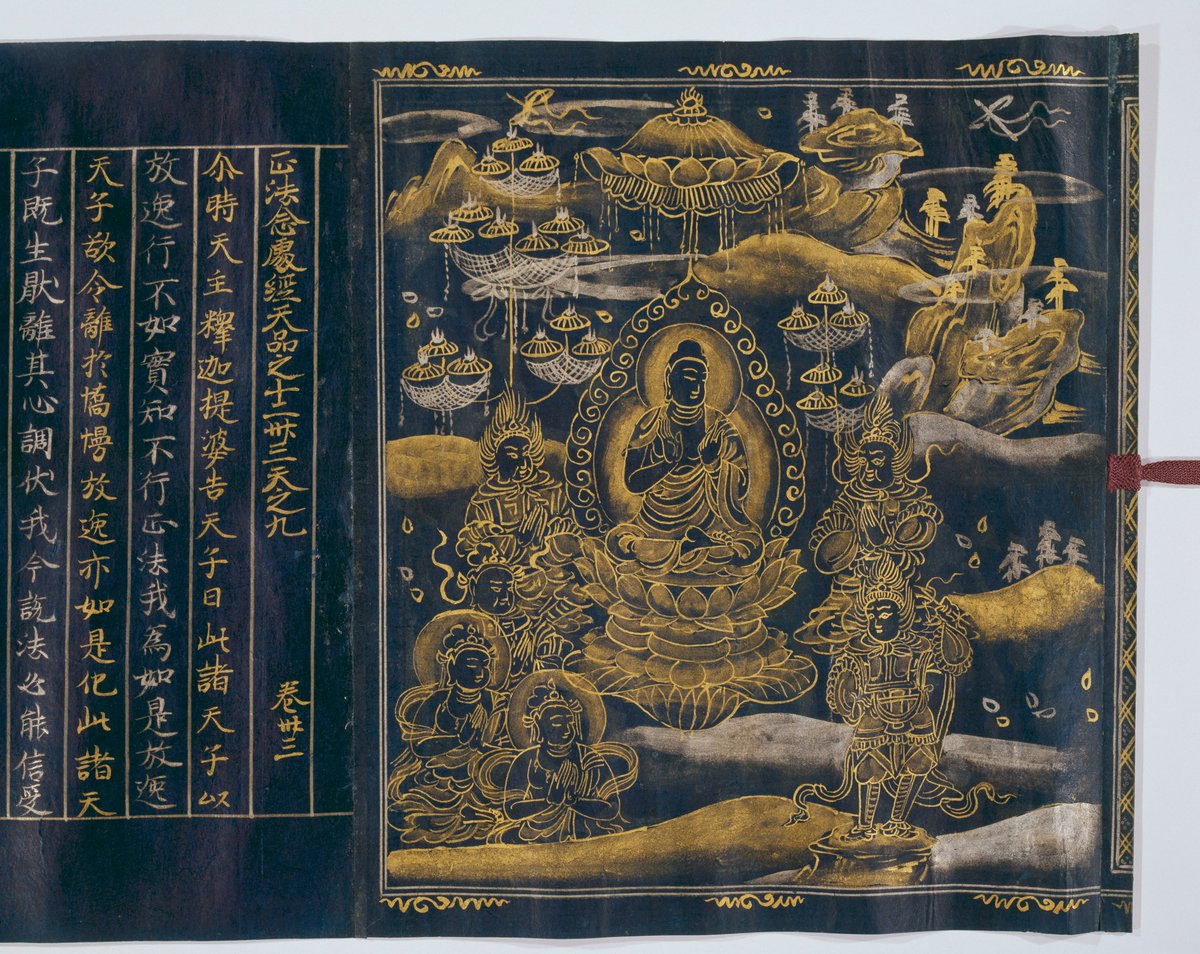 正法念處經天品之十二卅三天之九 卷卅三
尒時天主釋迦提婆告天子曰此諸天子以
放逸行不如實知不行正法我為如是放逸
天子欲令離於憍慢放逸亦如是化此諸天
子既生猒離其心調伏我今說法必能信受